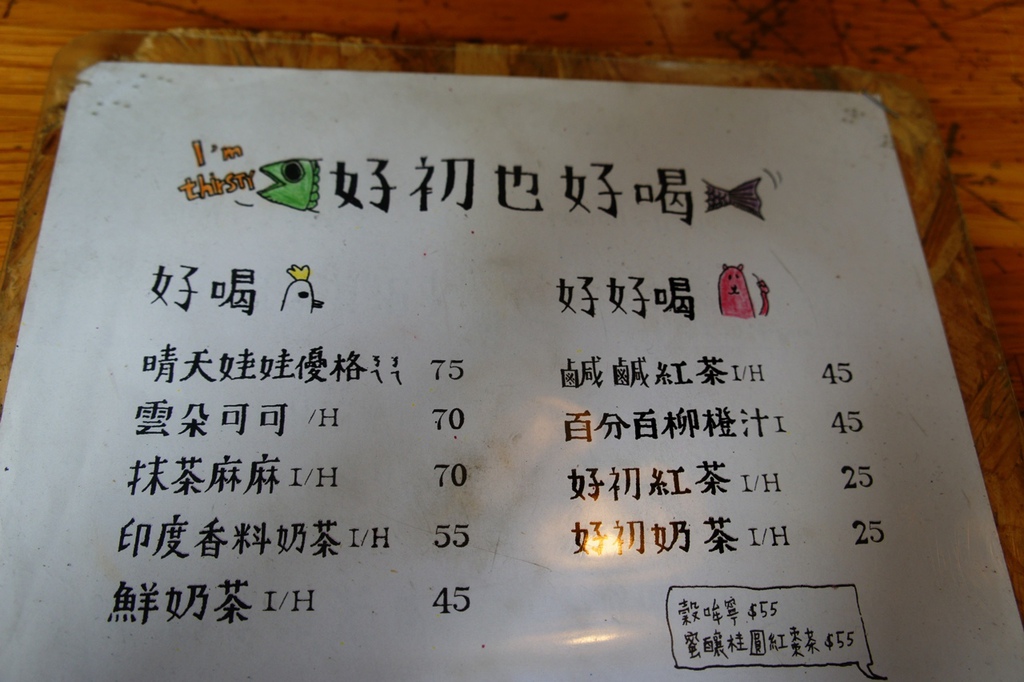 I'm
thirsty
好初也好喝
好喝
晴天娃娃優格ㄋㄋ 75
雲朵可可 /H 70
抹茶麻麻 I/H 70
印度香料奶茶 I/H 55
鮮奶茶 I/H 45
好好喝
鹹鹹紅茶 I/H 45
百分百柳橙汁 I 45
好初紅茶 I/H 25
好初奶茶 I/H 25
穀哞寧 $55
蜜釀桂圓紅棗茶 $55